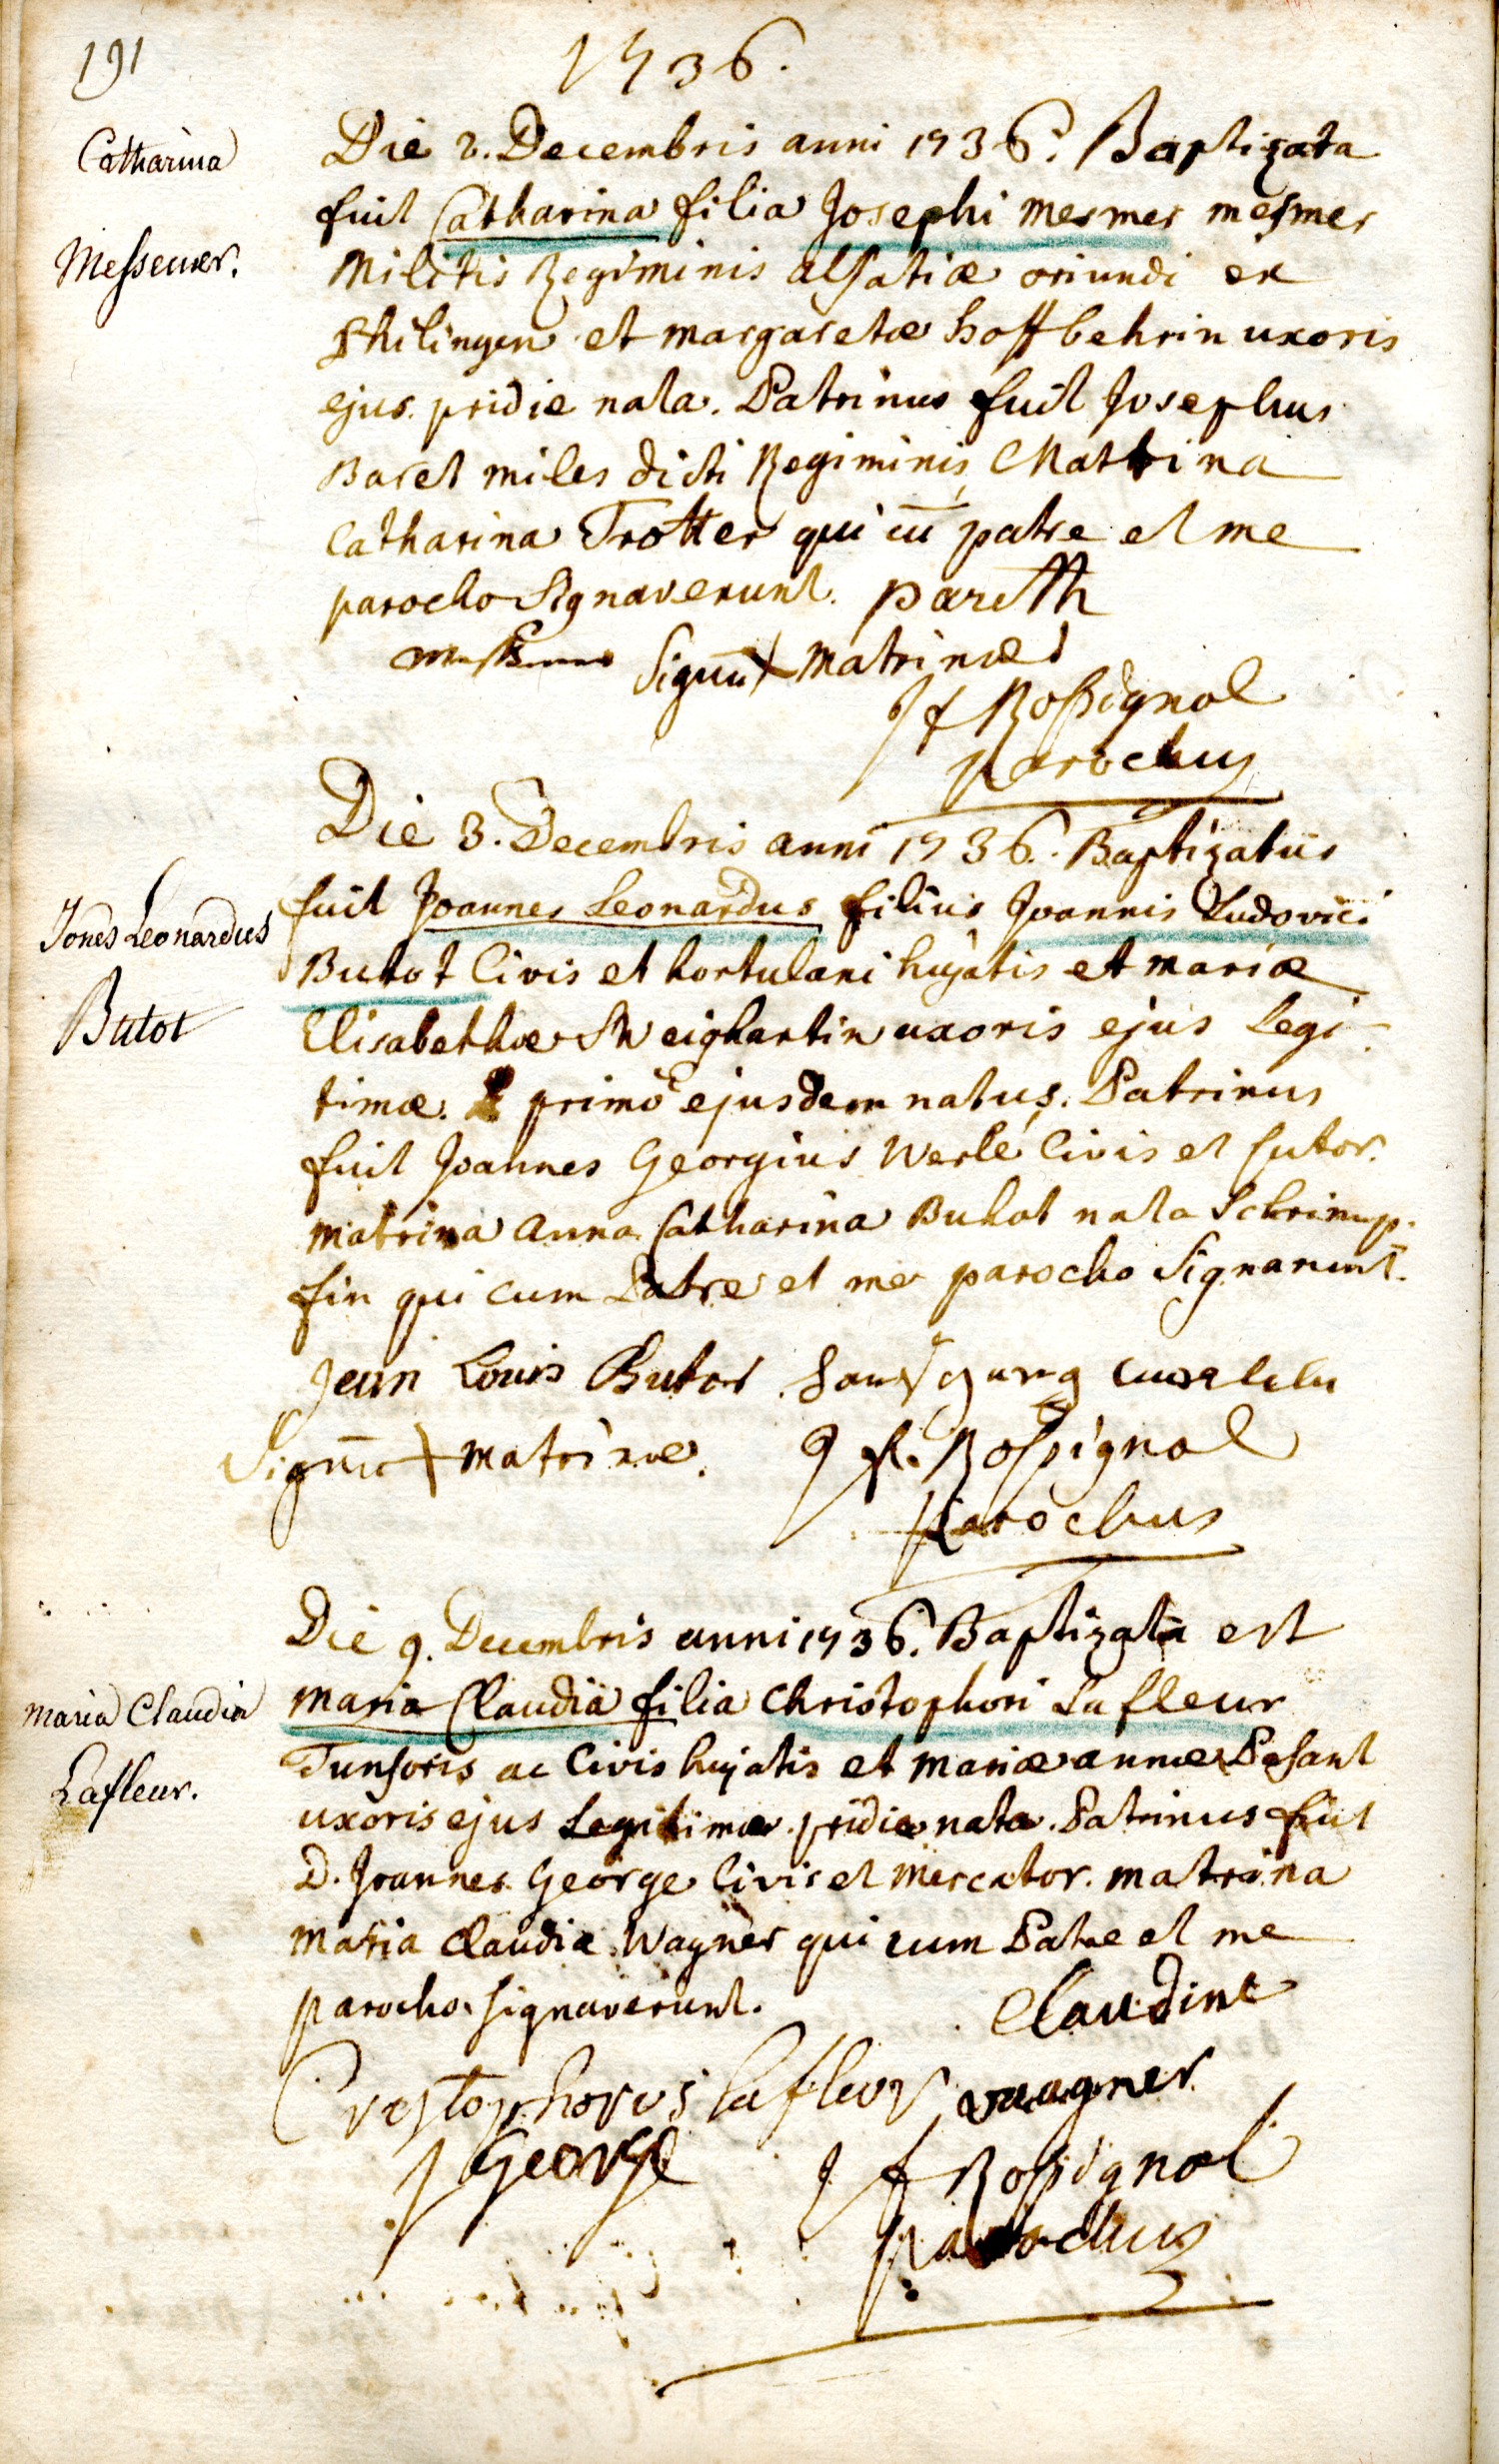 191
1736.
Catharina
Messemer.
Die 2. Decembris anni 1736. Baptizata
fuit Catharina filia Josephi mesmer mesmer
Militis Regiminis alsatiæ oriundi ex
philingen et margaretæ hoffbehrin uxoris
ejus. pridie nata. Patrinus fuit Josephus
Baret miles dicti Regiminis, Matrina
Catharina Trotter qui cū patre et me
parocho signaverunt. pareth
Signū + matrinæ
J f Rossignol
parochus
Joñes Leonardus
Butot
Die 3. Decembris anni 1736. Baptizatus
fuit Joannes Leonardus filius Joannis Ludovici
Butot Civis et hortulani hujatis et mariæ
Elisabethæ Schweighartin uxoris ejus Legi-
timæ. primo ejusdem natus. Patrinus
fuit Joannes Georgius Werlé Civis et sutor.
matrina anna Catharina Butot nata Schrimp-
fin qui cum Patre et me parocho signarunt.
Jean Louis Butot
Signū + matrinæ.
J f. Rossignol
parochus
maria Claudia
Lafleur.
Die 9. Decembris anni 1736. Baptizata est
maria Claudia filia Christophori Lafleur
Tunsoris ac Civis hujatis et mariæ annæ Pesant
uxoris ejus Legitimæ. pridie nata. Patrinus fuit
D. Joannes George Civis et mercator. matrina
maria Claudia Wagner qui cum Patre et me
parocho signaverunt.
Claudine
Crestophorus lafleur vaagner
J George
J f Rossignol
parochus